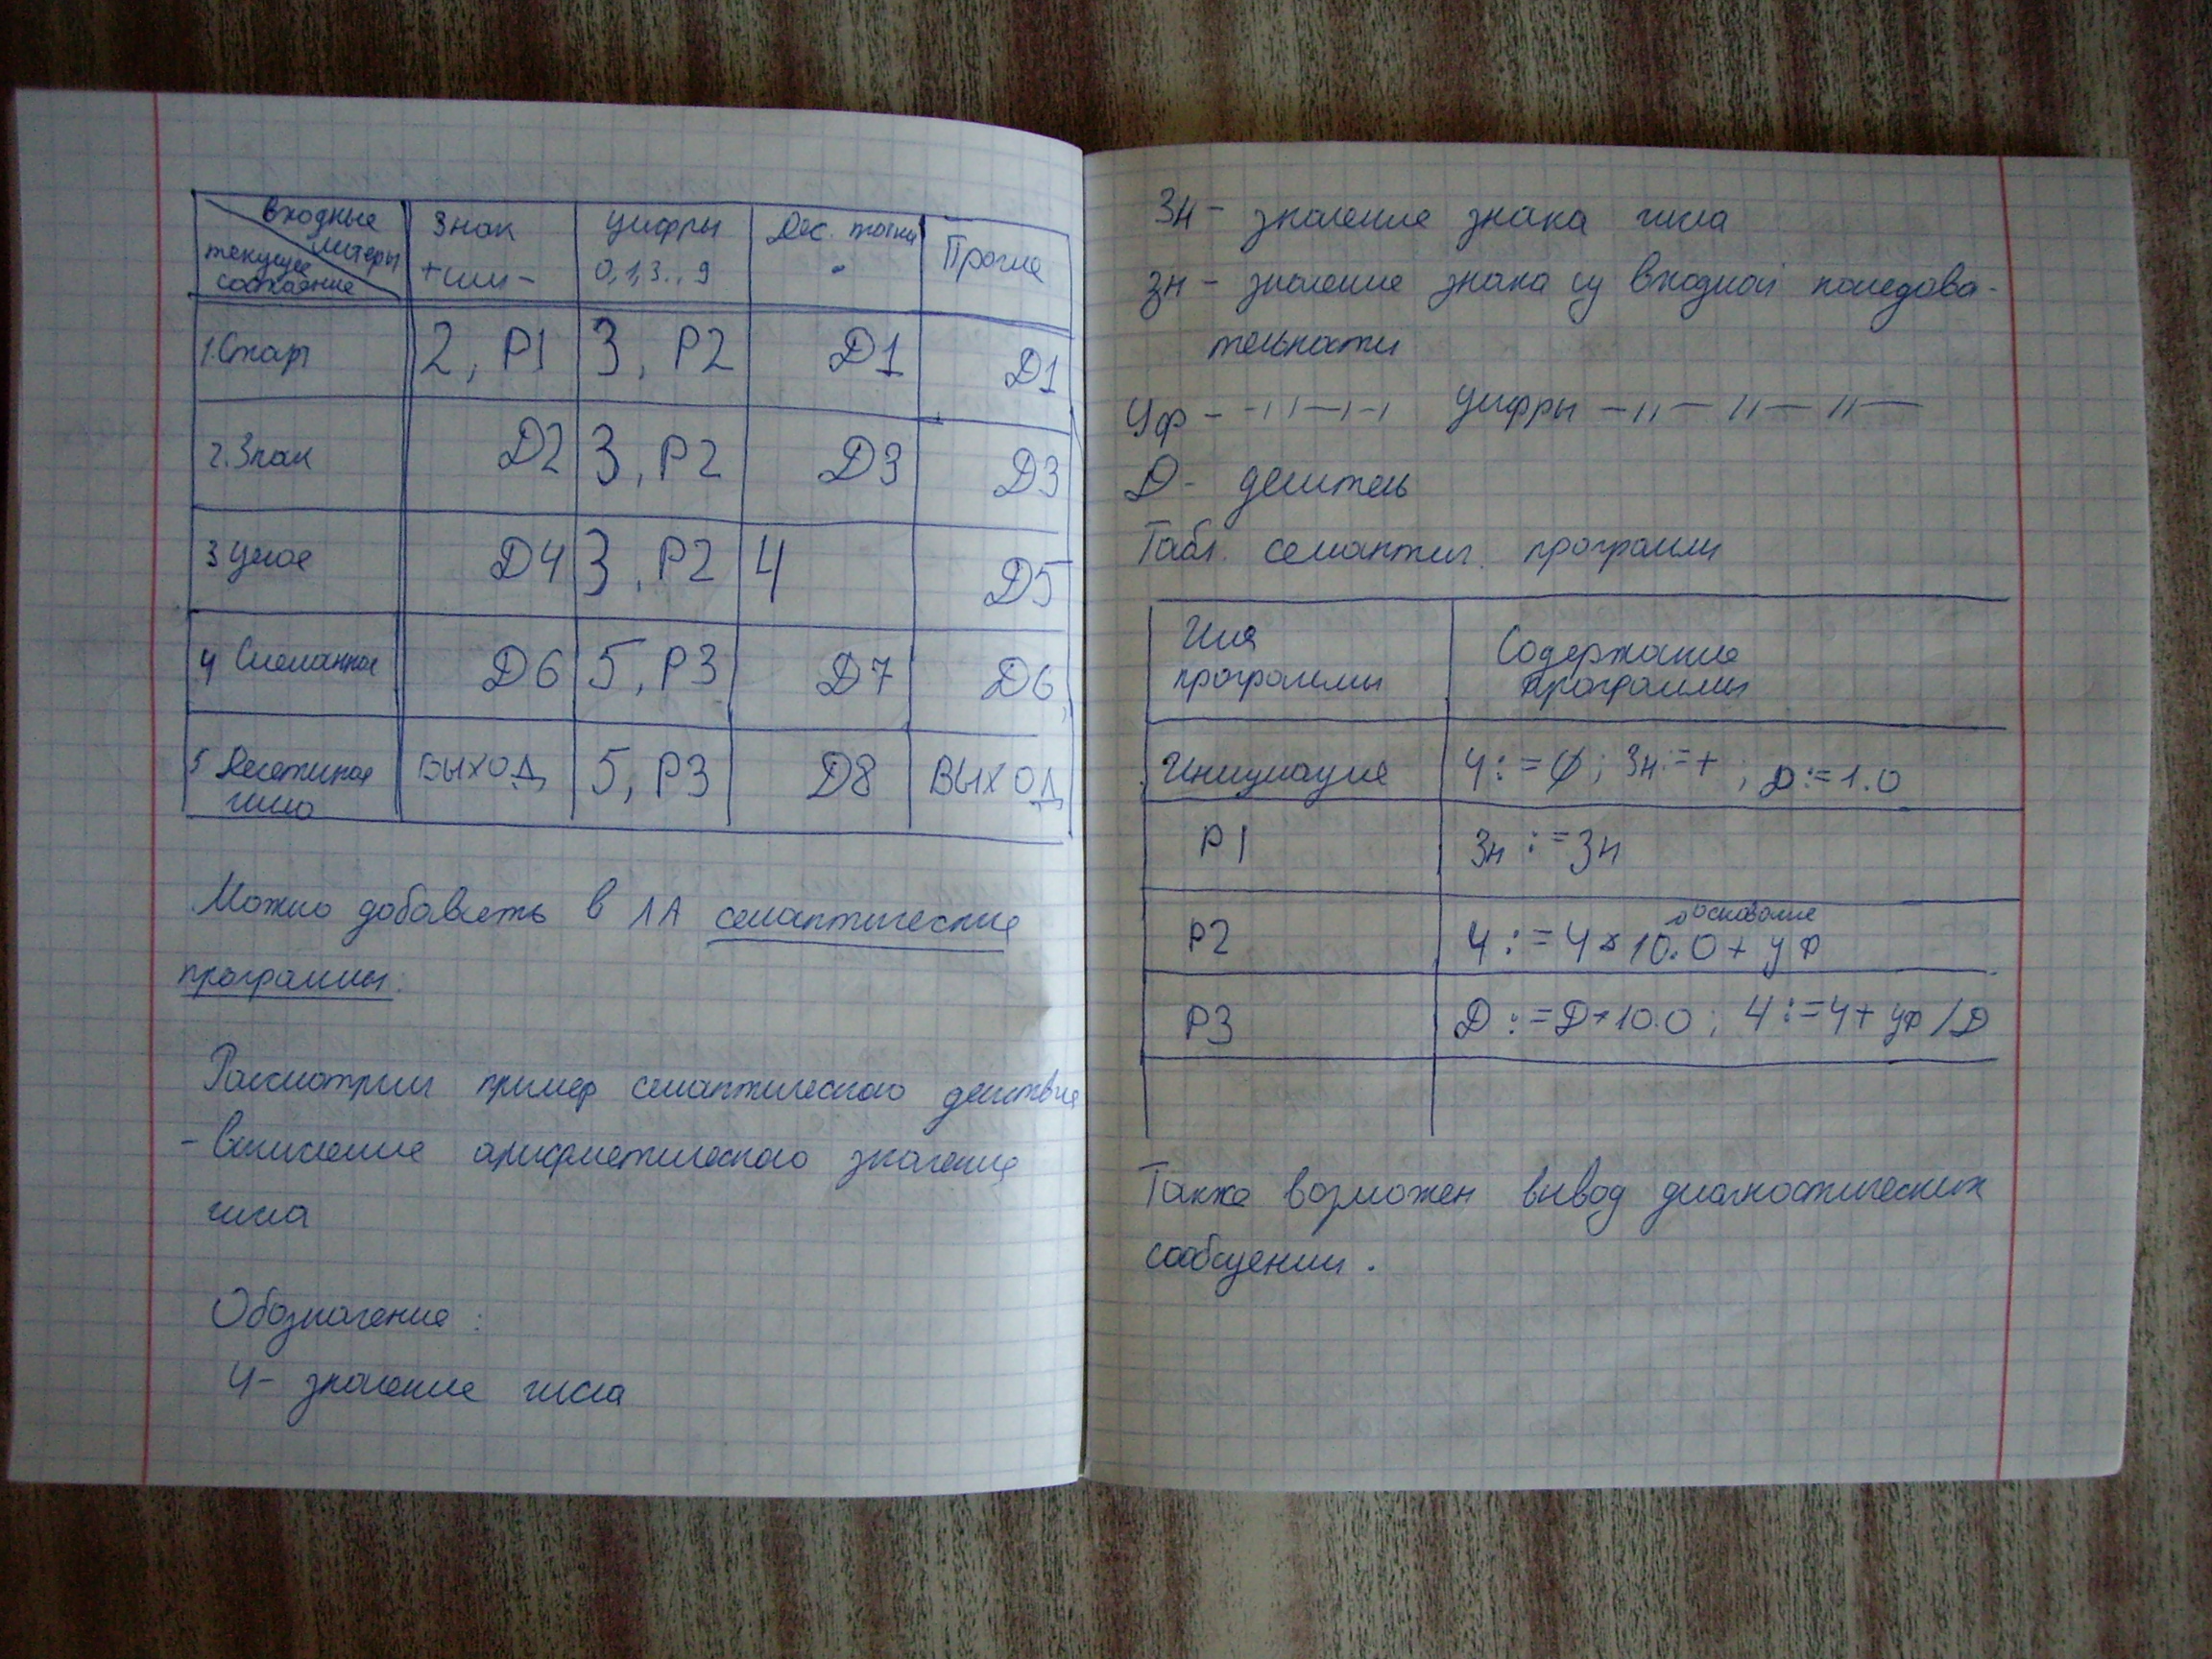 входные литеры / текущее состояние | Знак + или - | цифры 0,1,3..,9 | Дес. точка . | Прочие
1. Старт | 2, P1 | 3, P2 | Д1 | Д1
2. Знак | Д2 | 3, P2 | Д3 | Д3
3 Целое | Д4 | 3, P2 | 4 | Д5
4 Смешанное | Д6 | 5, P3 | Д7 | Д6
5 Десятичное число | ВЫХОД | 5, P3 | Д8 | ВЫХОД
Можно добавить в ЛА семантические
программы:
Рассмотрим пример семантического действия
- вычисление арифметического значения
числа
Обозначение:
Ч - значение числа
Зн - значение знака числа
зн - значение знака из входной последова-
тельности
Цф - -〃-〃- цифры -〃-〃-〃-
Д - делитель
Табл. семантич. программ
Имя программы | Содержание программы
Инициация | Ч:=0; Зн:=+; Д:=1.0
P1 | Зн:=зн
P2 | Ч:=Ч*10.0+цф основание
P3 | Д:=Д*10.0; Ч:=Ч+цф/Д
Также возможен вывод диагностических
сообщений.